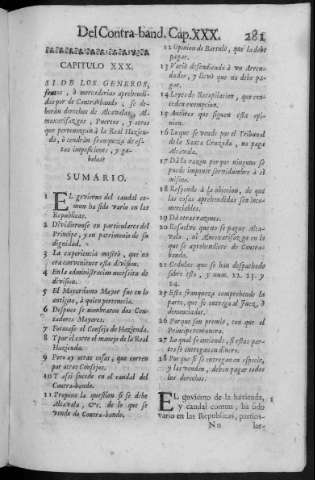 Del Contra-band. Cap. XXX. 281
CAPITULO XXX.
SI DE LOS GENEROS,
frutos, ò mercaderias aprehendi-
das por de Contrabando, se de-
berán derechos de Alcavalas, Al-
moxarifazgos, Puertos, y otros
que pertenezcan à la Real Hazien-
da, ò tendrán franqueza de es-
tas imposiciones, y ga-
belas?
SUMARIO.
1 EL govierno del caudal co-
mun ha sido vario en las
Republicas.
2 Dividieronse en particulares del
Principe, y en patrimonio de su
dignidad.
3 La experiencia mostrò, que no
era conveniente esta division.
4 En la administracion necesita de
division.
5 El Mayordomo Mayor fue en lo
antiguo, à quien pertenecia.
6 Despues se nombraron dos Con-
tadores Mayores.
7 Formase el Consejo de Hazienda.
8 Y por èl corre el manejo de la Real
Hazienda.
9 Pero ay otras cosas, que corren
por otros Consejos.
10 Y assi sucede en el caudal del
Contra-bando.
11 Propone la question si se debe
Alcavala, &c. de lo que se
vende de Contra-bando.
12 Opinion de Bartulo, que la debe
pagar.
13 Varió defendiendo à un Arren-
dador, y llevò que no debe pa-
gar.
14 Leyes de Recopilacion, que con-
ceden excepcion.
15 Autores que siguen esta opi-
nion.
16 Lo que se vende por el Tribunal
de la Santa Cruzada, no paga
Alcavala.
17 Dà la razon por que ninguno se
puede imponer servidumbre à sì
mismo.
18 Responde à la objecion, de que
las cosas aprehendidas son in-
comerciables.
19 Dà otras razones.
20 Resuelve que no se pague Alca-
vala, ni Almoxarifazgo en lo
que se aprehendiere de Contra-
bando.
21 Cedulas que se han despachado
sobre esto, y num. 22. 23. y
24.
25 Esta franqueza comprehende la
parte, que se entrega al Juez, ò
denunciador.
26 Porque son premio, con que el
Principe remunera.
27 Lo qual se entiende, si estas par-
tes se entregan en dinero.
28 Por que si se entregan en especie,
y las venden, deben pagar todos
los derechos.
EL govierno de la hazienda, 1
y caudal comun, ha sido
vario en las Republicas, particu-
Nn lar-